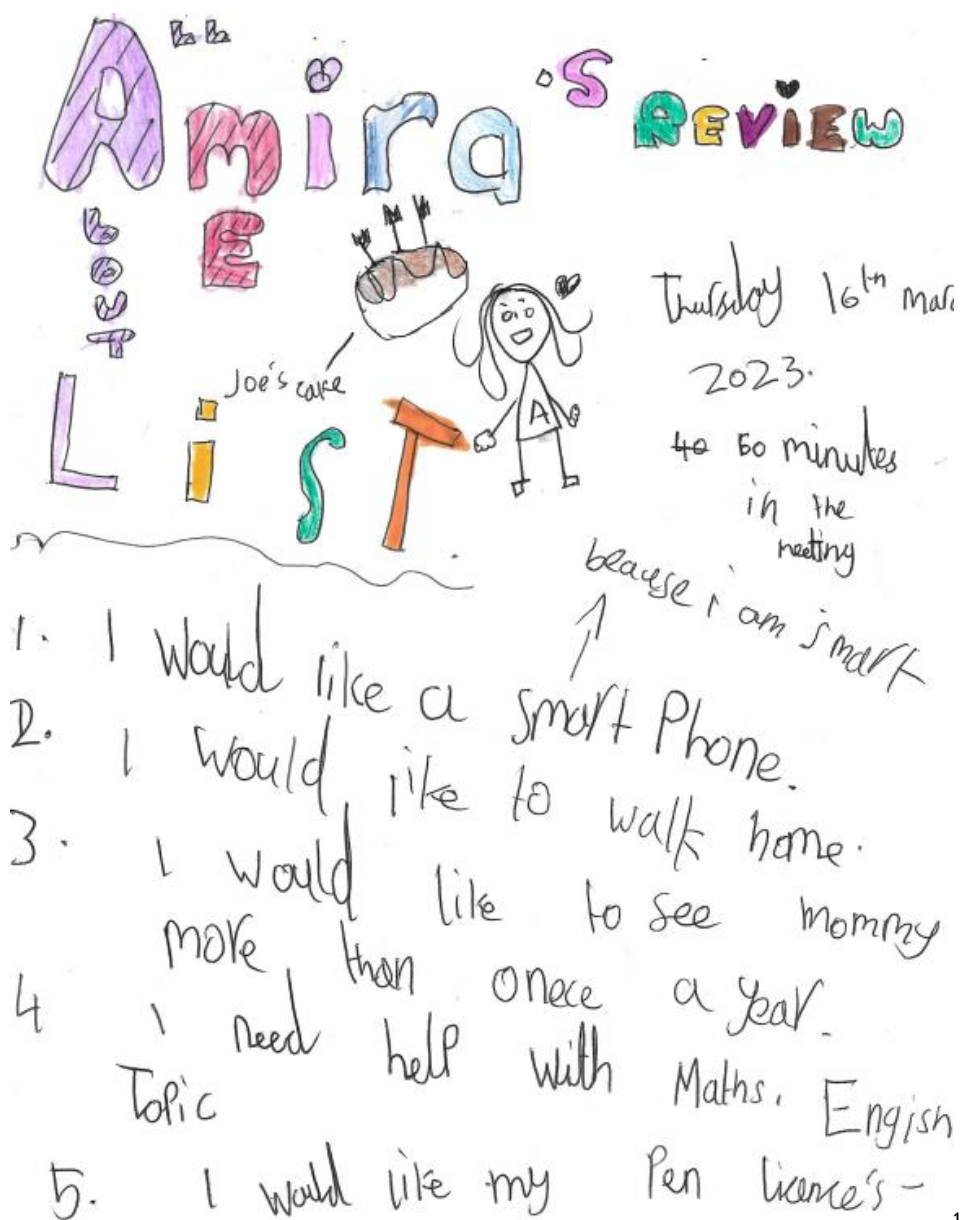 Amira's REVIEW
ABOUT
ME
Joe's cake
LiST
A
Thursday 16th marc
2023.
40 50 minutes
in the
meeting
beause i am smart
1. I would like a smart Phone.
2. I would like to walk home.
3. I would like to see mommy
more than onece a year.
4 I need help with Maths, Engish
Topic
5. I would like my Pen licence's-
1